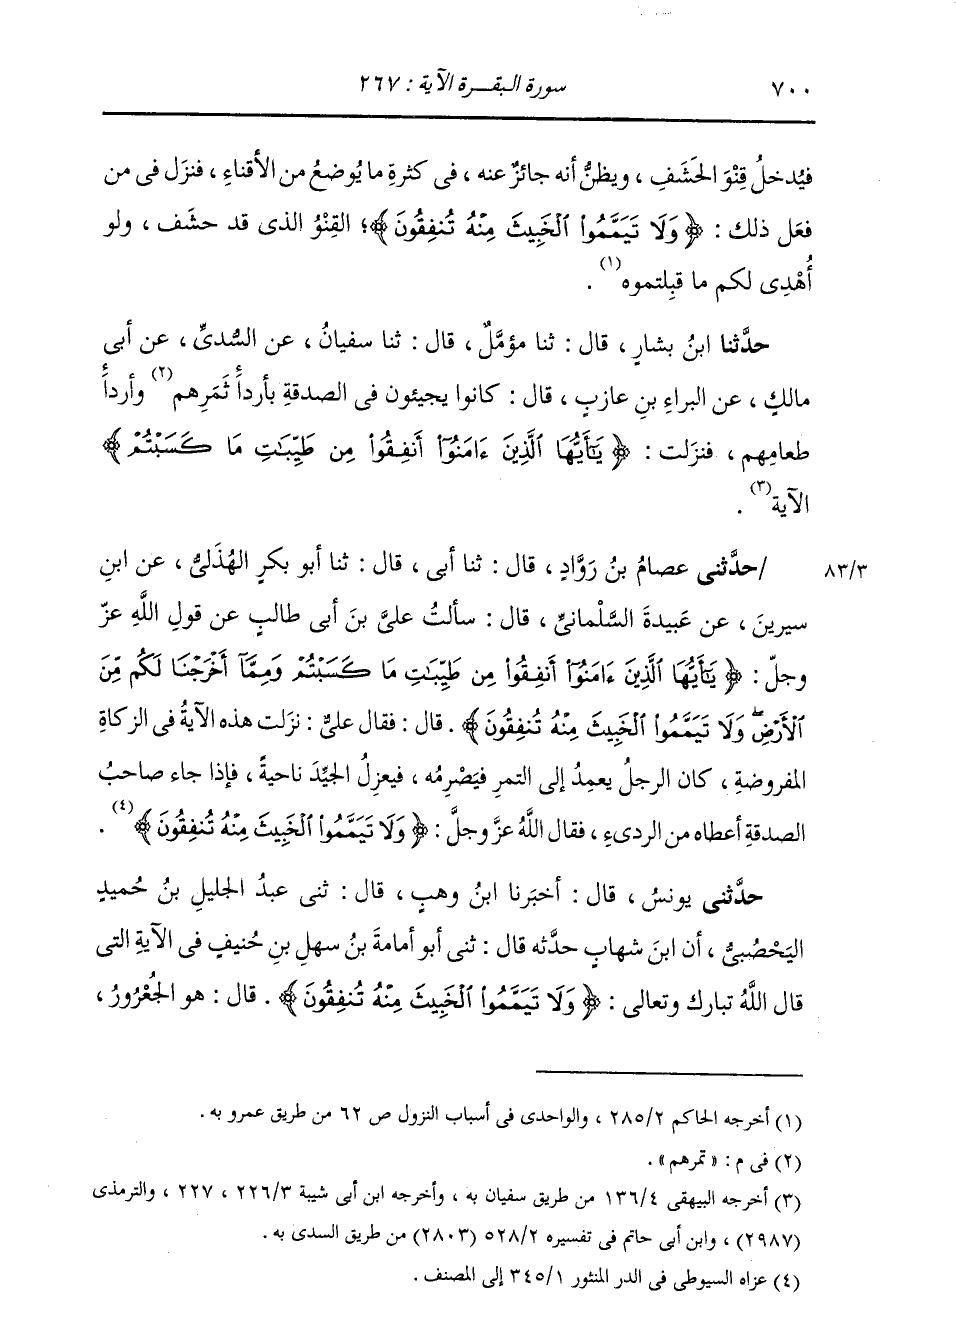 ٧٠٠ سورة البقرة الآية : ٢٦٧
فيُدخلُ قِنْوَ الحَشَفِ ، ويظنُّ أنه جائزٌ عنه ، فى كثرةِ ما يُوضعُ من الأقناءِ ، فنزَل فى من
فعَل ذلك : ﴿وَلَا تَيَمَّمُوا۟ ٱلْخَبِيثَ مِنْهُ تُنفِقُونَ﴾؛ القِنْوُ الذى قد حشَف ، ولو
أُهْدِى لكم ما قبِلتموه(١) .
حدَّثنا ابنُ بشارٍ ، قال : ثنا مؤمَّلٌ ، قال : ثنا سفيانُ ، عن السُّدىِّ ، عن أبى
مالكٍ ، عن البراءِ بنِ عازبٍ ، قال : كانوا يجيئون فى الصدقةِ بأردأَ ثَمَرِهم(٢) وأردأَ
طعامِهم ، فنزَلت : ﴿يَٰٓأَيُّهَا ٱلَّذِينَ ءَامَنُوٓا۟ أَنفِقُوا۟ مِن طَيِّبَٰتِ مَا كَسَبْتُمْ﴾
الآية(٣) .
٨٣/٣ /حدَّثنى عصامُ بنُ رَوَّادٍ ، قال : ثنا أبى ، قال : ثنا أبو بكرٍ الهُذَلىُّ ، عن ابنِ
سيرينَ ، عن عَبيدةَ السَّلْمانىِّ ، قال : سألتُ علىَّ بنَ أبى طالبٍ عن قولِ اللَّهِ عزَّ
وجلَّ : ﴿يَٰٓأَيُّهَا ٱلَّذِينَ ءَامَنُوٓا۟ أَنفِقُوا۟ مِن طَيِّبَٰتِ مَا كَسَبْتُمْ وَمِمَّآ أَخْرَجْنَا لَكُم مِّنَ
ٱلْأَرْضِۖ وَلَا تَيَمَّمُوا۟ ٱلْخَبِيثَ مِنْهُ تُنفِقُونَ﴾ . قال : فقال علىٌّ : نزَلت هذه الآيةُ فى الزكاةِ
المفروضةِ ، كان الرجلُ يعمِدُ إلى التمرِ فيَصْرِمُه ، فيعزِلُ الجيِّدَ ناحيةً ، فإذا جاء صاحبُ
الصدقةِ أعطاه من الردىءِ ، فقال اللَّهُ عزَّ وجلَّ : ﴿وَلَا تَيَمَّمُوا۟ ٱلْخَبِيثَ مِنْهُ تُنفِقُونَ﴾(٤) .
حدَّثنى يونسُ ، قال : أخبَرنا ابنُ وهبٍ ، قال : ثنى عبدُ الجليلِ بنُ حُميدٍ
اليَحْصُبىُّ ، أن ابنَ شهابٍ حدَّثه قال : ثنى أبو أمامةَ بنُ سهلِ بنِ حُنيفٍ فى الآيةِ التى
قال اللَّهُ تبارك وتعالى : ﴿وَلَا تَيَمَّمُوا۟ ٱلْخَبِيثَ مِنْهُ تُنفِقُونَ﴾ . قال : هو الجُعْرُورُ ،
(١) أخرجه الحاكم ٢٨٥/٢ ، والواحدى فى أسباب النزول ص ٦٢ من طريق عمرو به .
(٢) فى م : « تمرهم » .
(٣) أخرجه البيهقى ١٣٦/٤ من طريق سفيان به ، وأخرجه ابن أبى شيبة ٢٢٦/٣ ، ٢٢٧ ، والترمذى
(٢٩٨٧) ، وابن أبى حاتم فى تفسيره ٥٢٨/٢ (٢٨٠٣) من طريق السدى به .
(٤) عزاه السيوطى فى الدر المنثور ٣٤٥/١ إلى المصنف .